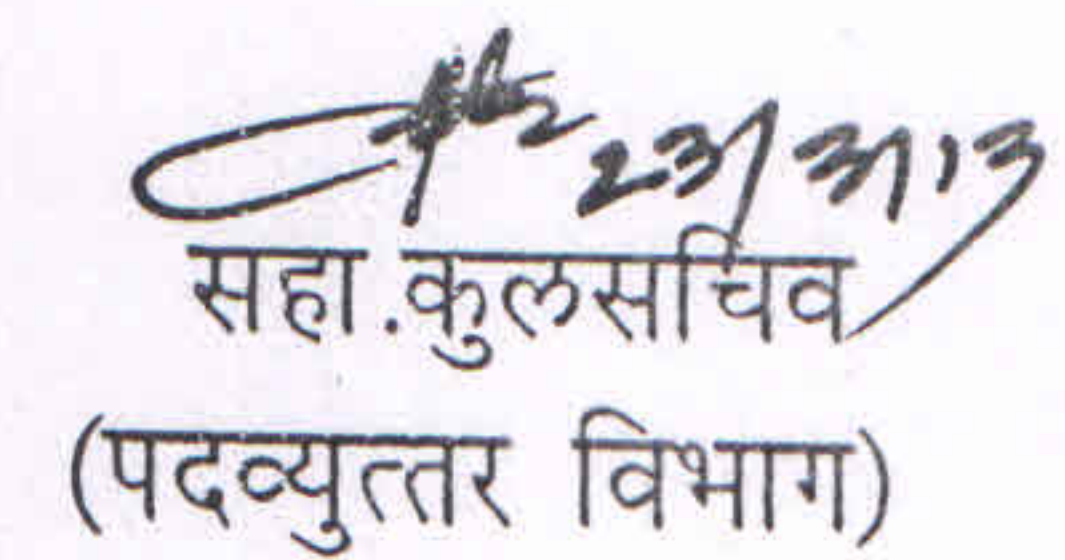 23/3/13
सहा.कुलसचिव
(पदव्युत्तर विभाग)